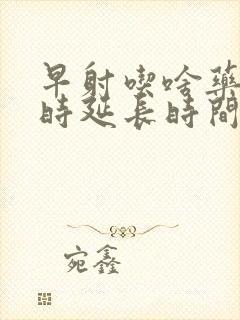 早射喫啥藥
時延長時間
宛鑫